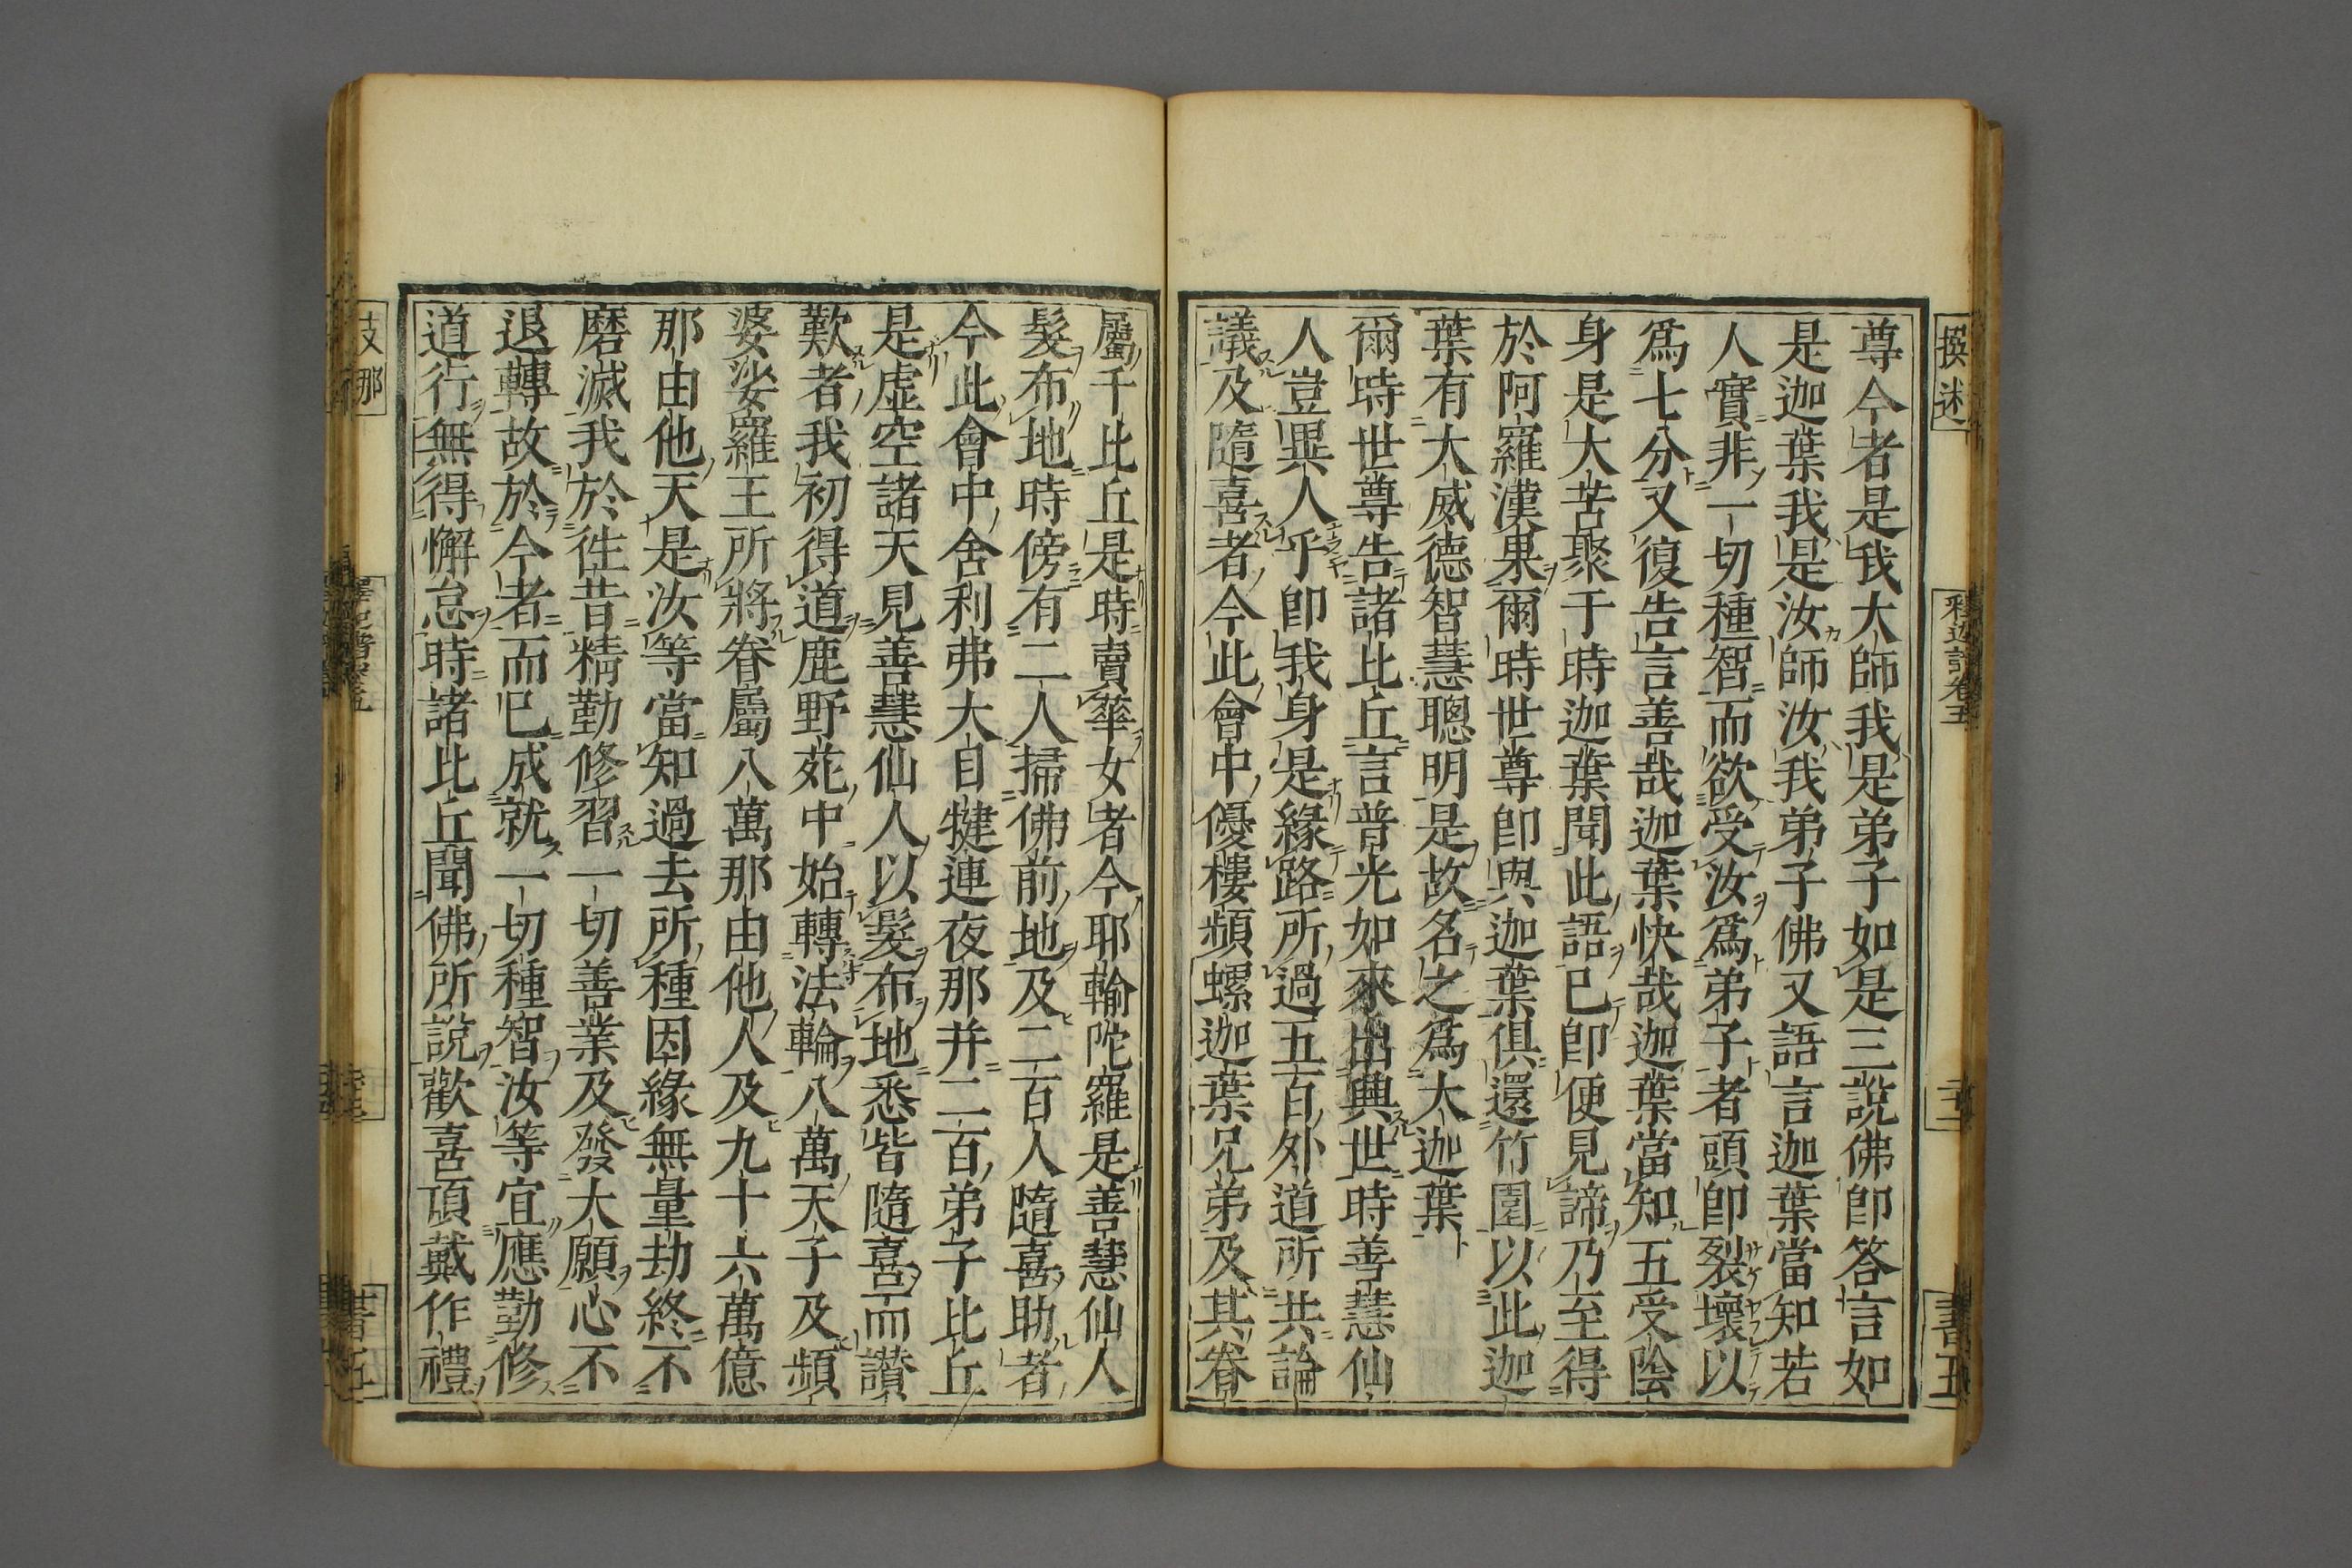 尊今者是我大師我是弟子如是三說佛卽答言如
是迦葉我是汝師汝我弟子佛又語言迦葉當知若
人實非一切種智而欲受汝爲弟子者頭卽裂壞以
爲七分又復告言善哉迦葉快哉迦葉當知五受陰
身是大苦聚于時迦葉聞此語已卽便見諦乃至得
於阿羅漢果爾時世尊卽與迦葉俱還竹園以此迦
葉有大威德智慧聰明是故名之爲大迦葉
爾時世尊告諸比丘言普光如來出興世時善慧仙
人豈異人乎卽我身是緣路所過五百外道所共論
議及隨喜者今此會中優樓頻螺迦葉兄弟及其眷
屬千比丘是時賣華女者今耶輸陀羅是善慧仙人
髮布地時傍有二人掃佛前地及二百人隨喜助者
今此會中舍利弗大目犍連夜那并二百弟子比丘
是虛空諸天見善慧仙人以髮布地悉皆隨喜而讚
歎者我初得道鹿野苑中始轉法輪八萬天子及頻
婆娑羅王所將眷屬八萬那由他人及九十六萬億
那由他天是汝等當知過去所種因緣無量劫終不
磨滅我於往昔精勤修習一切善業及發大願心不
退轉故於今者而已成就一切種智汝等宜應勤修
道行無得懈怠時諸比丘聞佛所說歡喜頂戴作禮